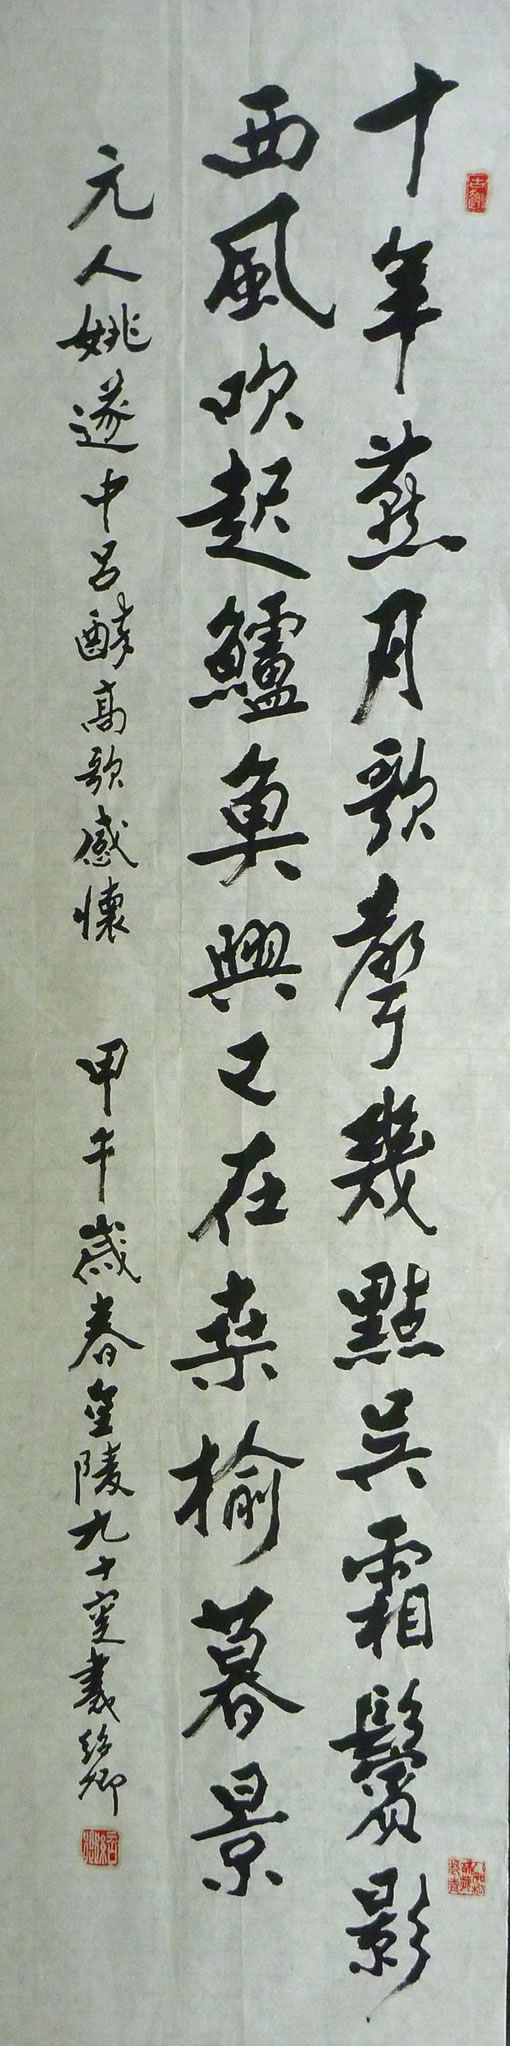 十年燕月歌聲幾點吳霜鬢影
西風吹起鱸魚興又在桑榆暮景
元人姚遂中呂醉高歌感懷 甲午歲春金陵九十叟戴紹卿